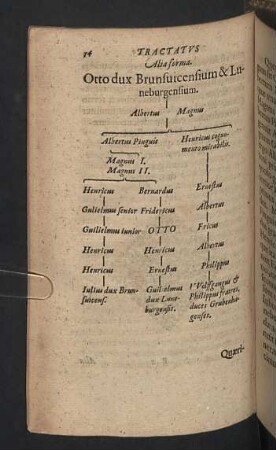 34 TRACTATVS
Alia forma.
Otto dux Brunsuicensium & Lu-
neburgensium.
Albertus Magnus
Albertus Pinguis Henricus cogno-
mento mirabilis.
Magnus I.
Magnus II.
Henricus Bernardus Ernestus
Gulielmus senior Fridericus Albertus
Guilielmus iunior OTTO Ericus
Henricus Henricus Albertus
Henricus Ernestus Philippus
Iulius dux Brun- Guilielmus VVolfgangus &
suicens. dux Lune- Philippus fratres,
burgensis. duces Grubenha-
genses.
Quæri-